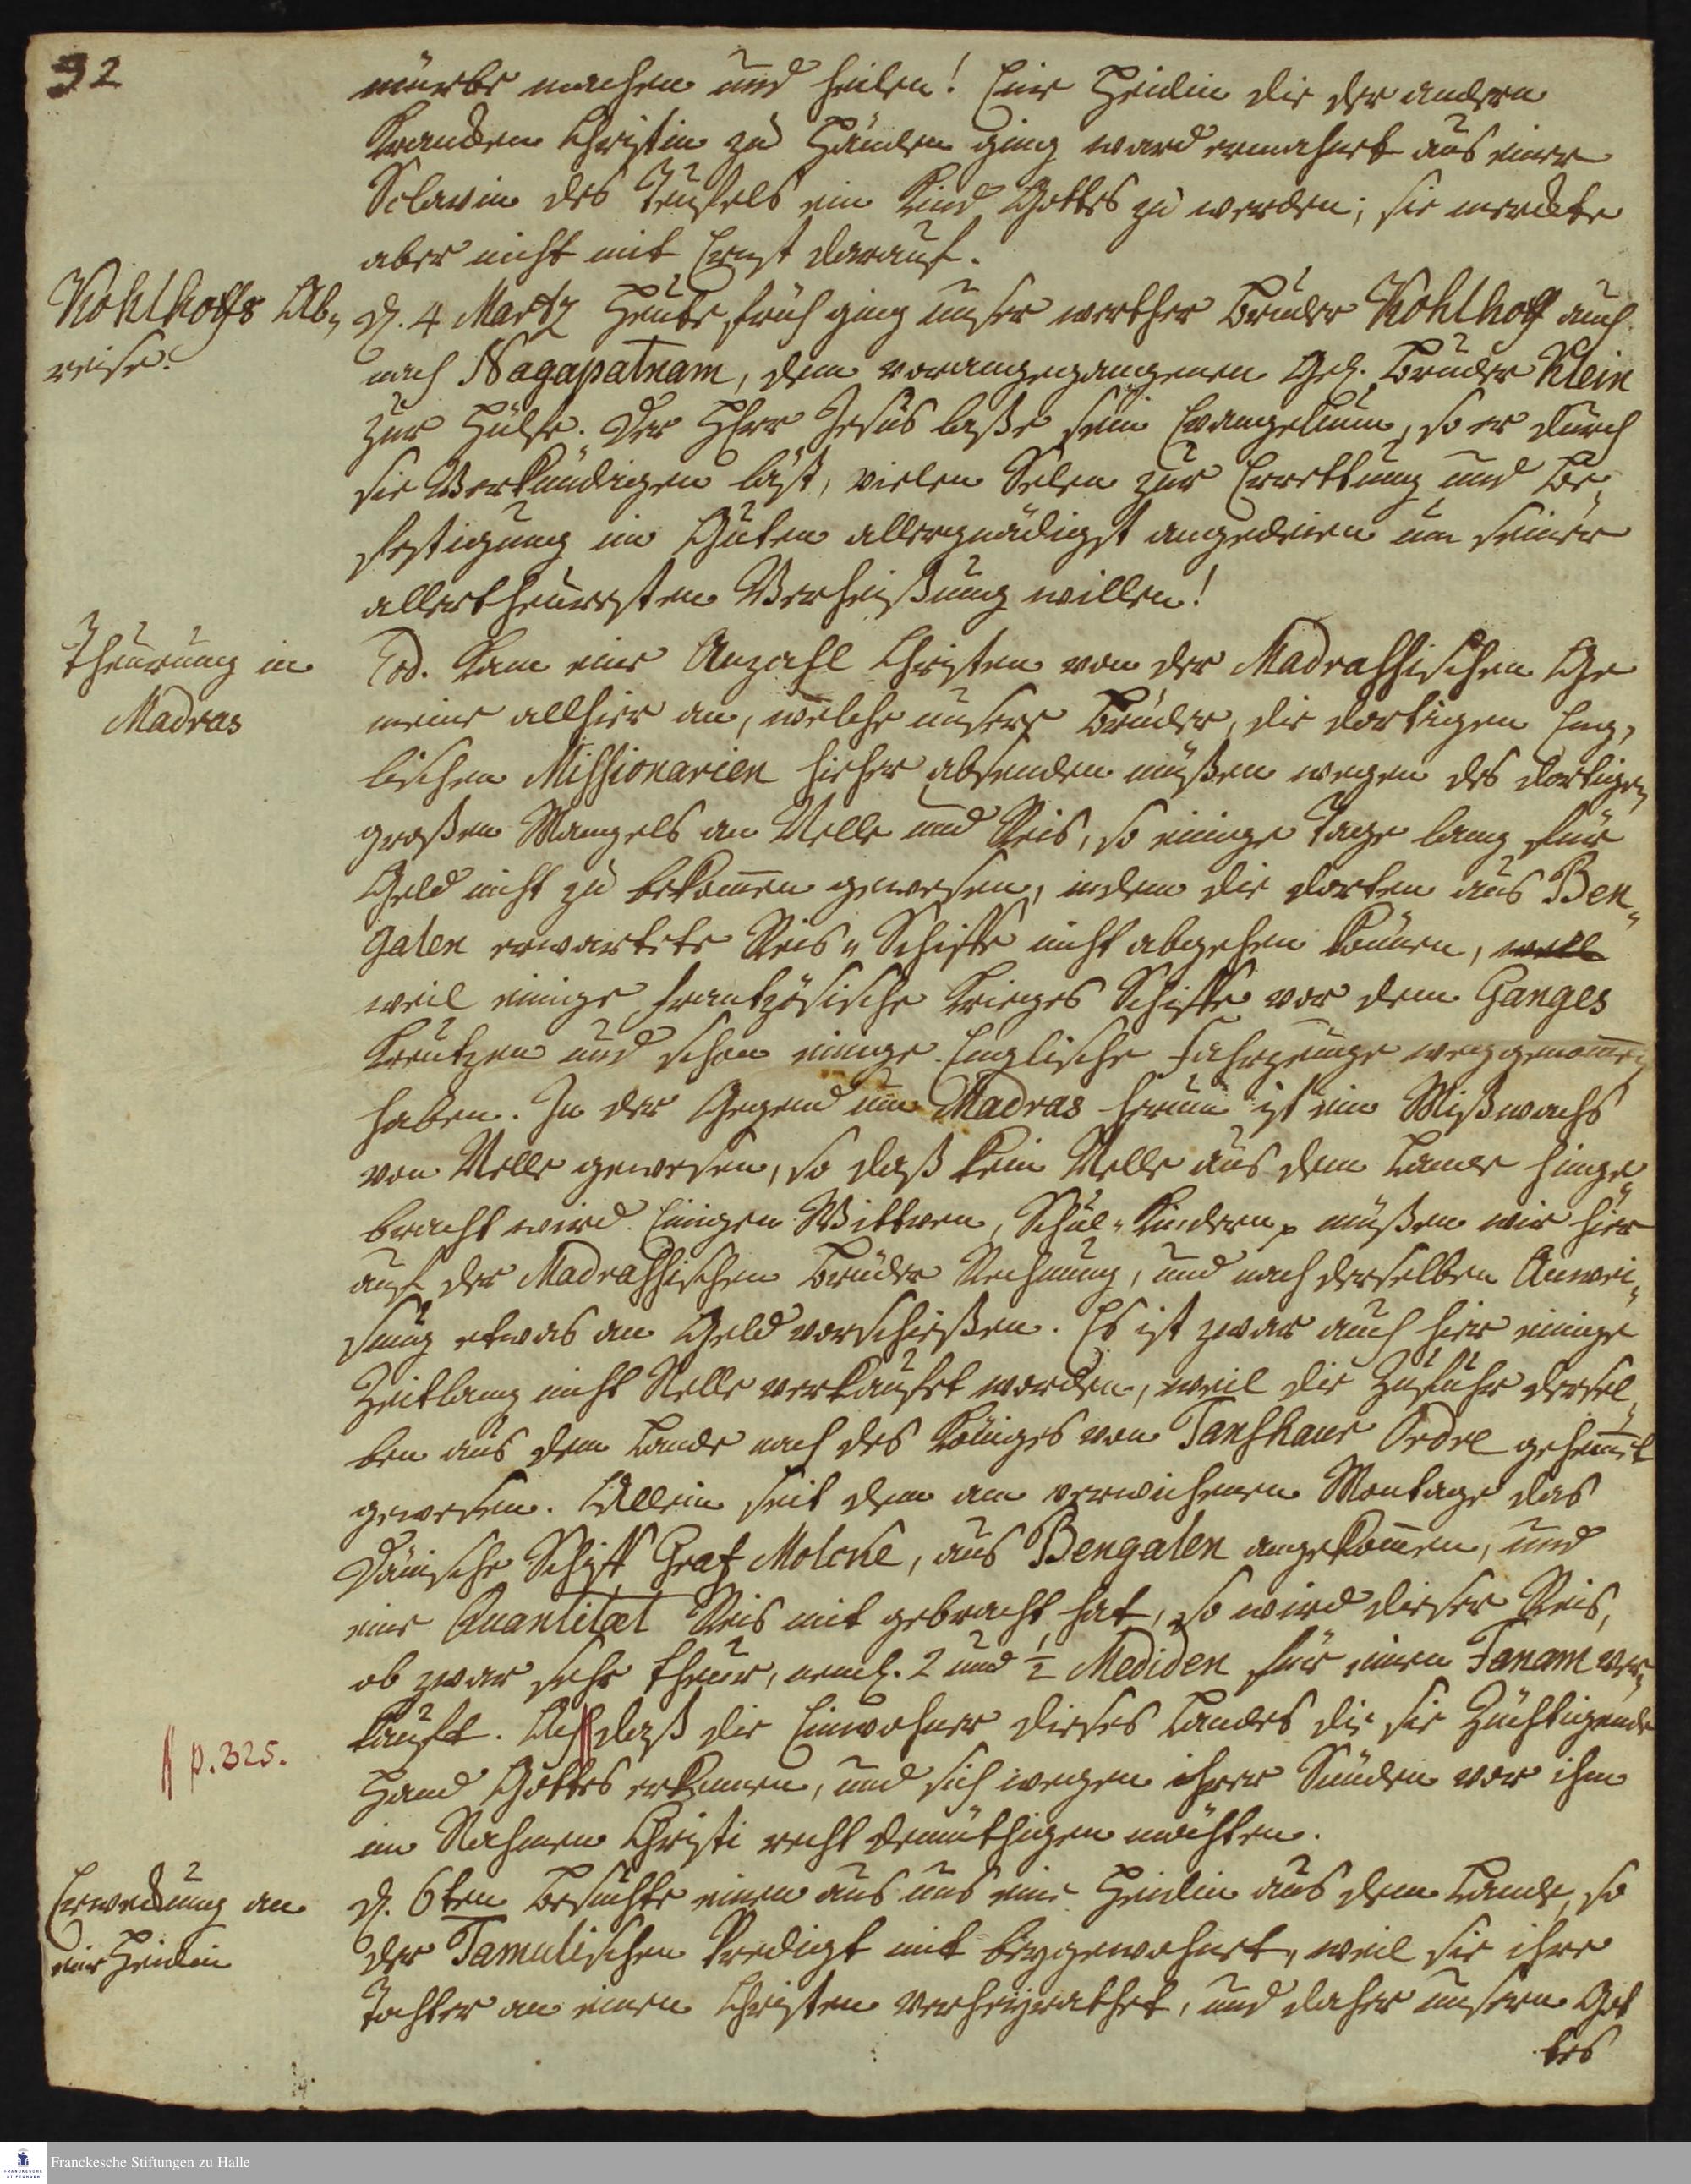 32
mürbe machen und heilen! Eine Heidin die der andern
krancken Christin zu Händen ging ward ermahnet aus einer
Sclavin des Teufels ein Kind Gottes zu werden; sie merckte
aber nicht mit Ernst darauf.
Kohlhoffs Ab„
reise.
D. 4 Martz Heute früh ging unser werther Bruder Kohlhoff auch
nach Nagapatnam, dem vorangegangenen Gel. Bruder Klein
zur Hülfe. Der Herr Jesus laße sein Evangelium, so er durch
sie Verkündigen läst, vielen Selen zur Errettung und Be„
festigung im Guten allergnädigst angedeien um seiner
allertheuresten Verheißung willen!
Theurung in
Madras
Eod. kam eine Anzahl Christen von der Madrassischen Ge
meine allhier an, welche unsere Brüder, die dortigen Eng„
lischen Missionarien hieher absenden müßen wegen des dortigen
großen Mangels an Nelle und Reis, so einige Tage lang für
Geld nicht zu bekommen gewesen, indem die dorten aus Ben„
galen erwartete Reis„Schiffe nicht abgehen können, weil
weil einige frantzösische Krieges Schiffe vor dem Ganges
kreutzen und schon einige Englische Fahrzeuge weggenommen
haben. In der Gegend um Madras herum ist ein Mißwachs
von Nelle gewesen, so daß kein Nelle aus dem Lande hinge„
bracht wird. Einigen Wittwen, Schul„Kindern p müßen wir hier
auf der Madrassischen Brüder Rechnung, und nach derselben Anwei„
sung etwas an Geld vorschießen. Es ist zwar auch hier einige
Zeitlang nicht Nelle verkaufet worden, weil die Zufuhr dersel„
ben aus dem Lande nach des Königes von Tanshaur Ordre gehemmet
gewesen. Allein seit dem am verwichenen Montage das
Dänische Schiff Graf Molcke, aus Bengalen angekommen, und
eine Quantitæt Reis mit gebracht hat, so wird dieser Reis,
ob zwar sehr theur, neml. 2 und ½ Mediden für einen Fanam ver„
kauft. Ach daß die Einwohner dieses Landes die sie Züchtigende
p. 325.
Hand Gottes erkennen, und sich wegen ihrer Sünden vor ihm
im Nahmen Christi recht demüthigen möchten.
Erweckung an
eine Heidin
D. 6ten Besuchte einen aus uns eine Heidin aus dem Lande, so
der Tamulischen Predigt mit beygewohnet, weil sie ihre
Tochter an einen Christen verheyrathet, und daher unsern Got
tes
Franckesche Stiftungen zu Halle